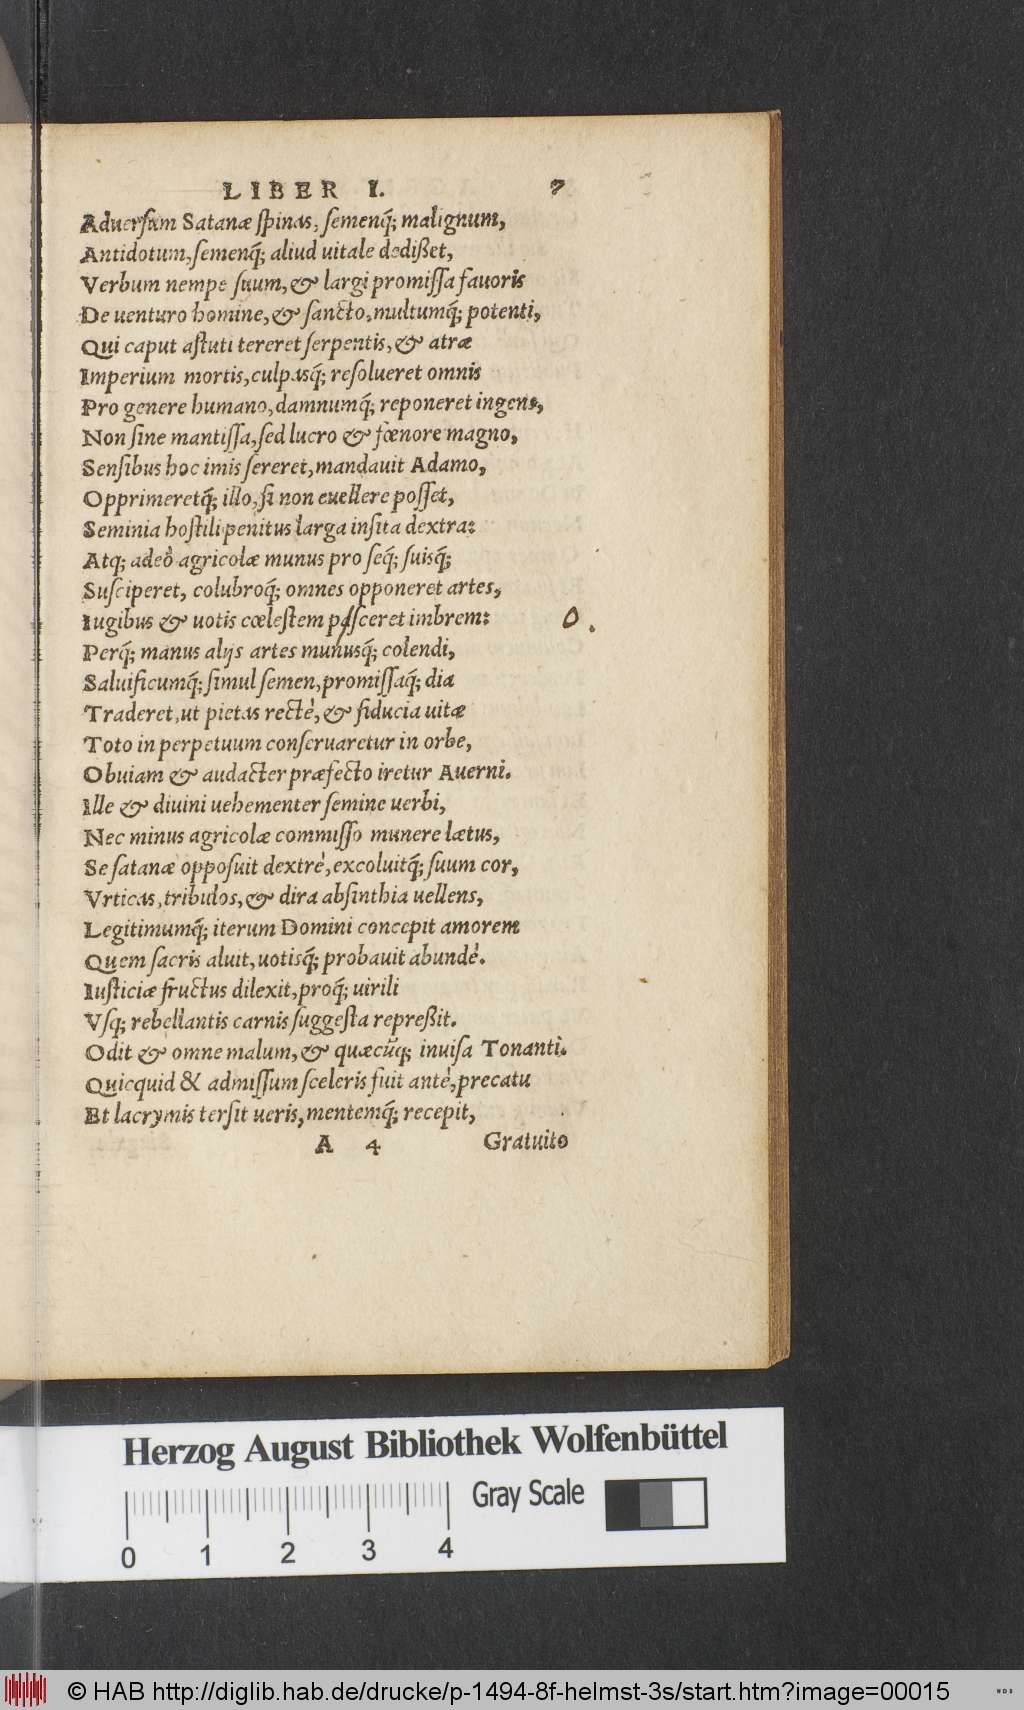 LIBER I. 7
Aduersum Satanæ ſpinas, ſemenq́; malignum,
Antidotum, ſemenq́; aliud uitale dedißet,
Verbum nempe ſuum, & largi promiſſa fauoris
De uenturo homine, & ſancto, multumq́; potenti,
Qui caput aſtuti tereret ſerpentis, & atræ
Imperium mortis, culpasq́; reſolueret omnis
Pro genere humano, damnumq́; reponeret ingens,
Non ſine mantiſſa, ſed lucro & fœnore magno,
Senſibus hoc imis ſereret, mandauit Adamo,
Opprimeretq́; illo, ſi non euellere poſſet,
Seminia hoſtili penitus larga inſita dextra:
Atq; adeò agricolæ munus pro ſeq́; ſuisq́;
Suſciperet, colubroq́; omnes opponeret artes,
Iugibus & uotis cœleſtem poſceret imbrem: O.
Perq́; manus alijs artes munusq́; colendi,
Saluificumq́; ſimul ſemen, promiſſaq́; dia
Traderet, ut pietas rectè, & fiducia uitæ
Toto in perpetuum conſeruaretur in orbe,
Obuiam & audacter præfecto iretur Auerni.
Ille & diuini uehementer ſemine uerbi,
Nec minus agricolæ commiſſo munere lætus,
Se ſatanæ oppoſuit dextrè, excoluitq́; ſuum cor,
Vrticas, tribulos, & dira abſinthia uellens,
Legitimumq́; iterum Domini concepit amorem
Quem ſacris aluit, uotisq́; probauit abundè.
Iuſticiæ fructus dilexit, proq́; uirili
Vſq; rebellantis carnis ſuggeſta repreßit.
Odit & omne malum, & quæcūq; inuiſa Tonanti.
Quicquid & admiſſum ſceleris fuit antè, precatu
Et lacrymis terſit ueris, mentemq́; recepit,
A 4 Gratuito
Herzog August Bibliothek Wolfenbüttel
Gray Scale
0 1 2 3 4
© HAB http://diglib.hab.de/drucke/p-1494-8f-helmst-3s/start.htm?image=00015